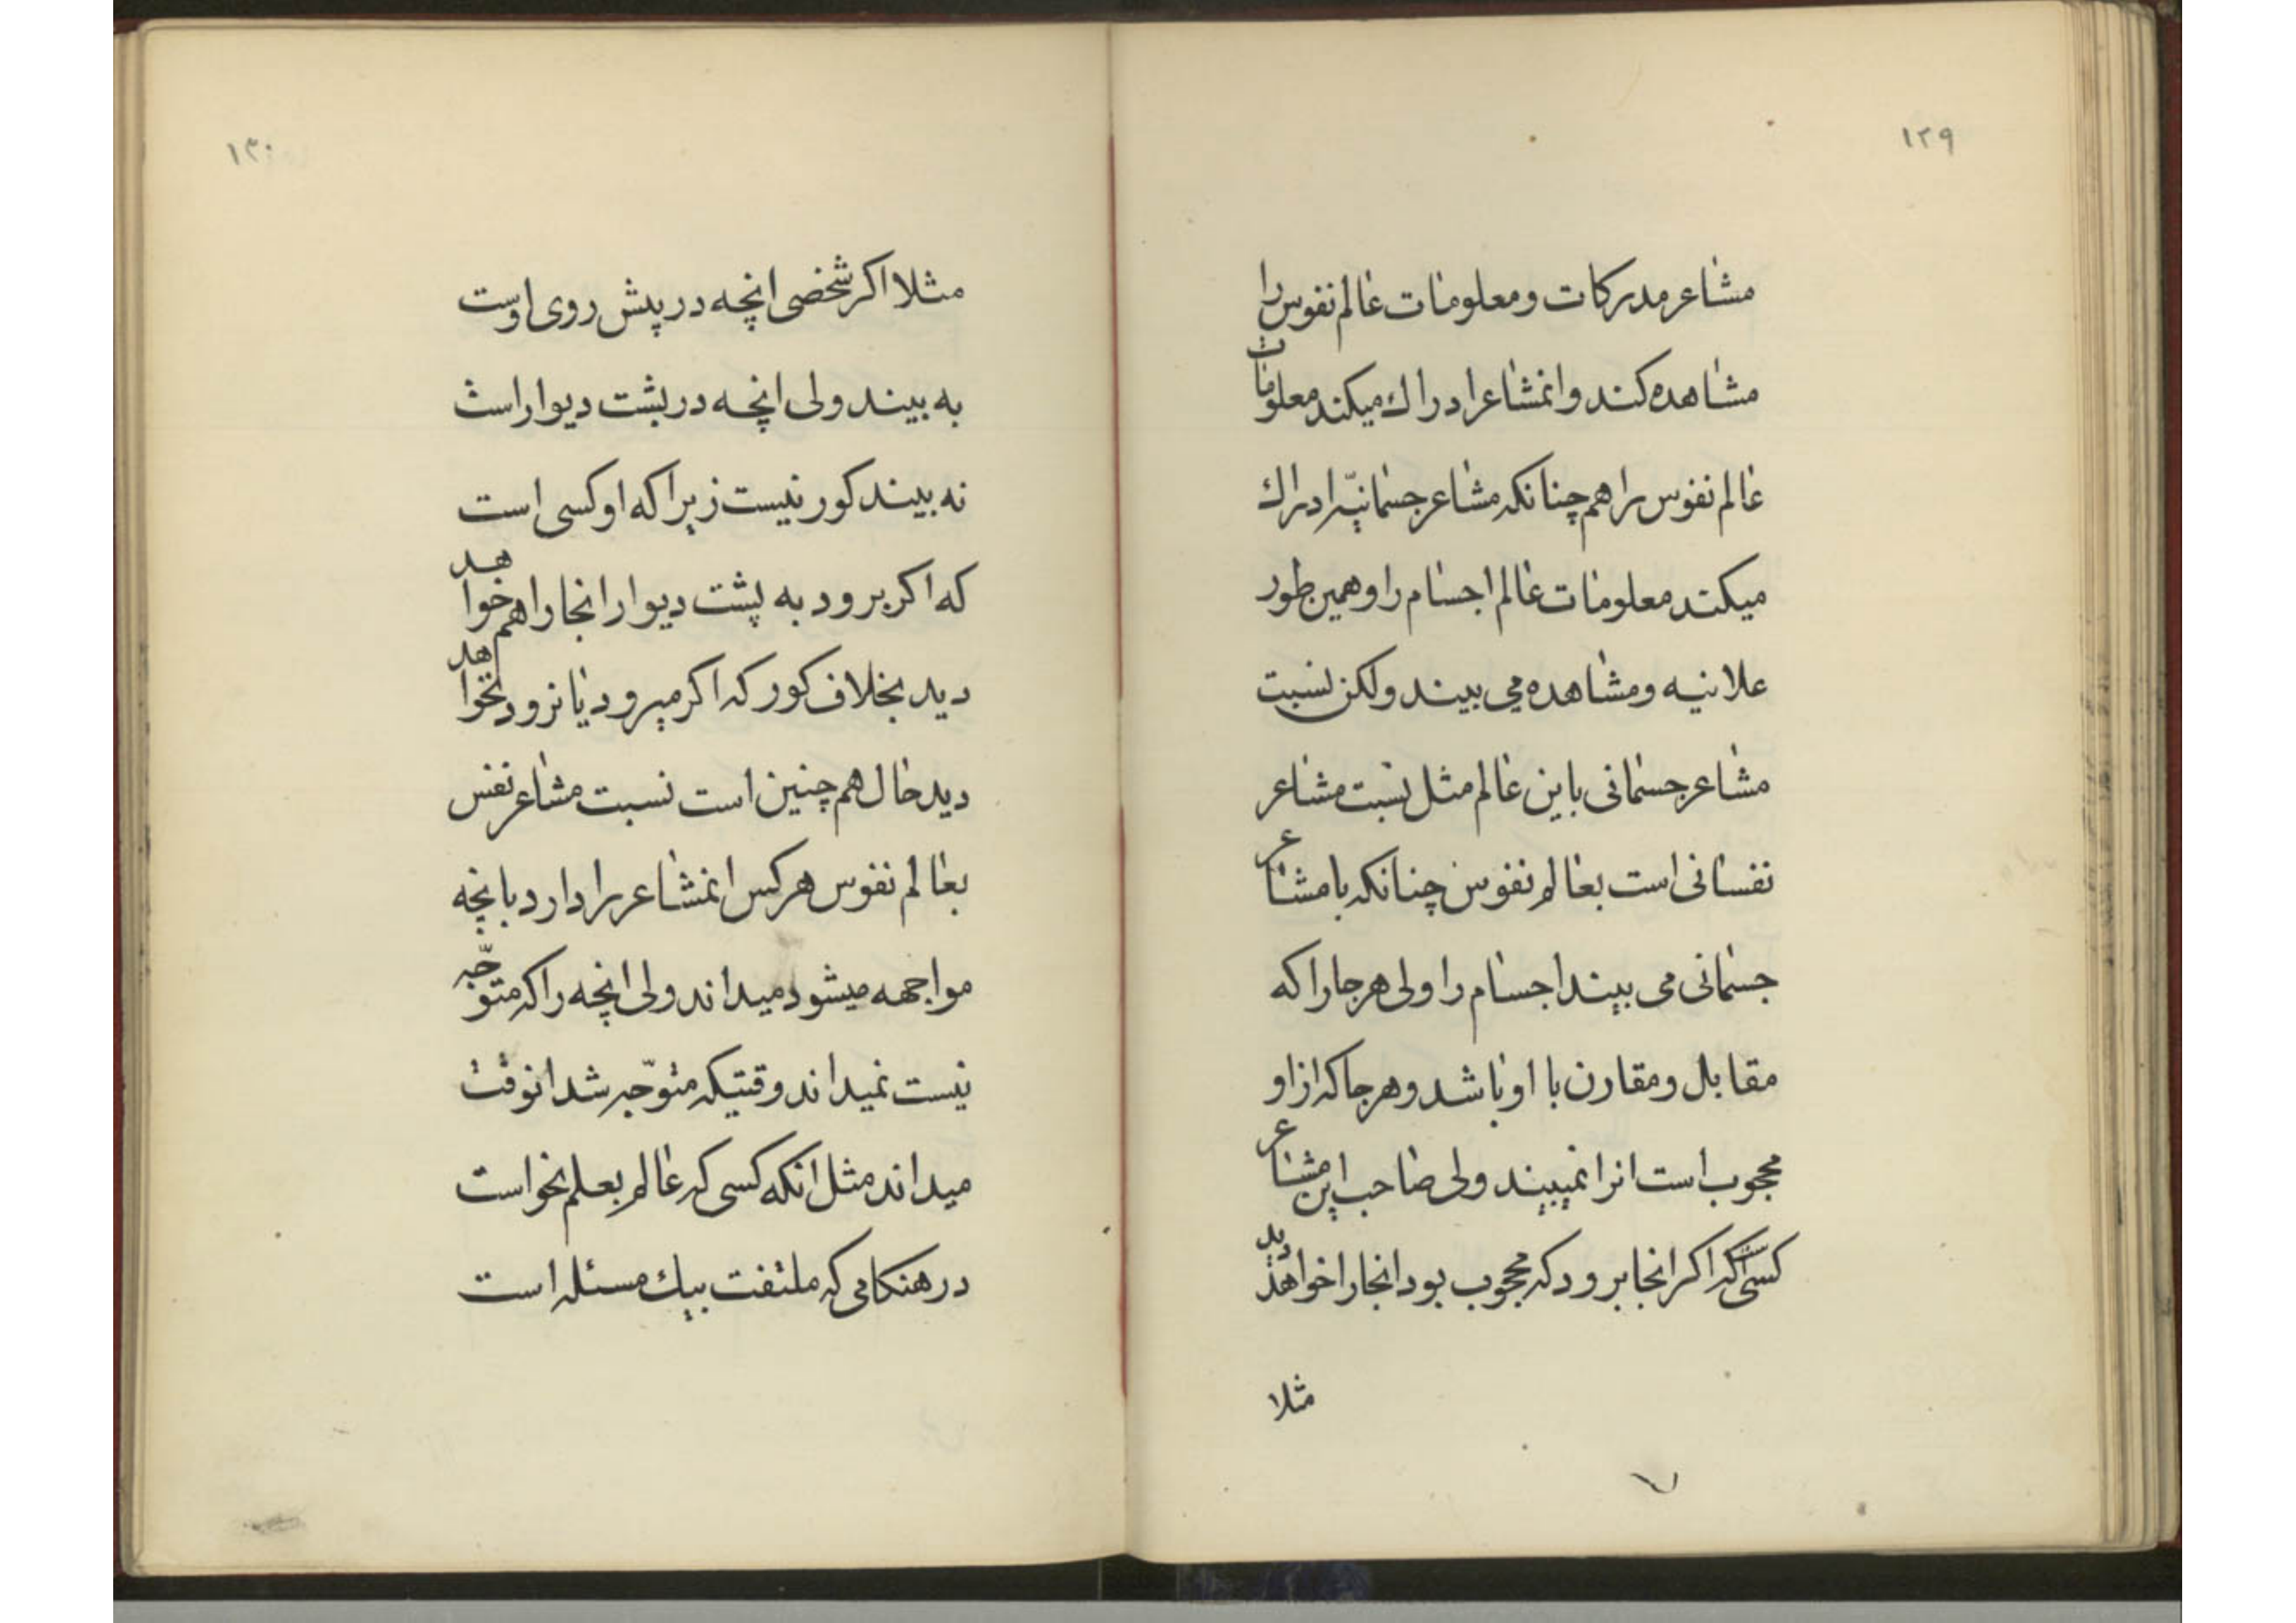 ١٢٩
مشاعر مدركات و معلومات عالم نفوس را
مشاهده كند و انمشاعر ادراك ميكند معلومات
عالم نفوس را هم چنانكه مشاعر جسمانيّه ادراك
ميكند معلومات عالم اجسام را و همين طور
علانيه و مشاهده مى بيند ولكن نسبت
مشاعر جسمانى باين عالم مثل نسبت مشاعر
نفسانى است بعالم نفوس چنانكه با مشاعر
جسمانى مى بيند اجسام را ولى هر جا را كه
مقابل و مقارن با او باشد و هر جا كه از او
محجوب است انرا نميبيند ولى صاحب اين مشاعر
كسى است كه اكر انجا برود كه محجوب بود انجا را خواهد ديد
مثلا
١٣٠
مثلا اكر شخصى انچه در پيش روى اوست
به بيند ولى انچه در پشت ديوار است
نه بيند كور نيست زيرا كه او كسى است
كه اكر برود به پشت ديوار انجا را هم خواهد
ديد بخلاف كور كه اكر ميرود يا نرود نخواهد
ديد حال هم چنين است نسبت مشاعر نفس
بعالم نفوس هر كس انمشاعر را دارد بانچه
مواجهه ميشود ميداند ولى انچه را كه متوجّه
نيست نميداند وقتيكه متوجّه شد انوقت
ميداند مثل انكه كسى كه عالم بعلم نحو است
در هنكامى كه ملتفت بيك مسئله است